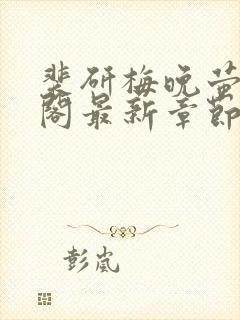 裴研梅晚萤
阁最新章节
彭岚